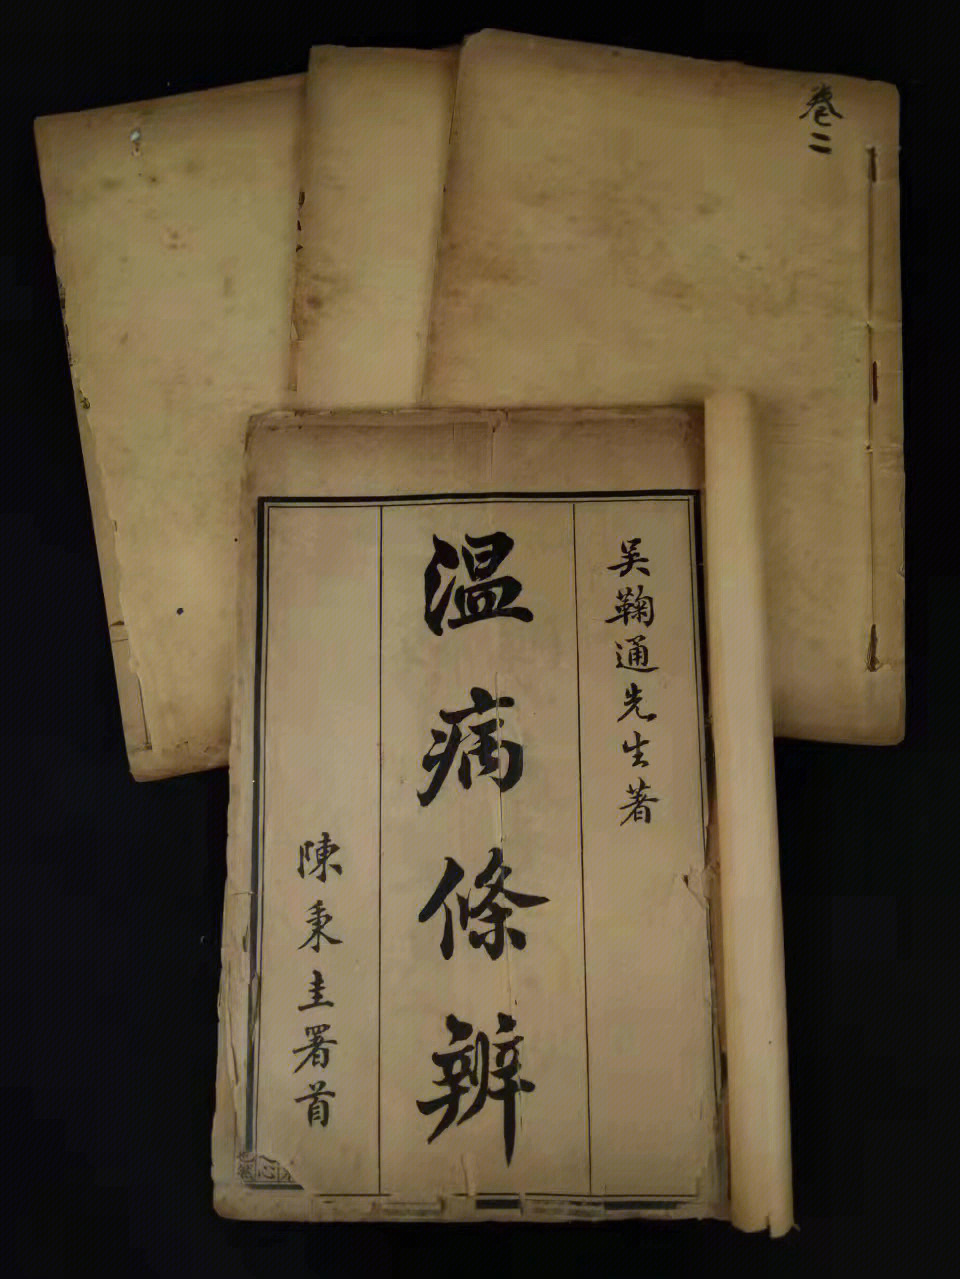 卷二
吴鞠通先生著
温病條辨
陳秉圭署首